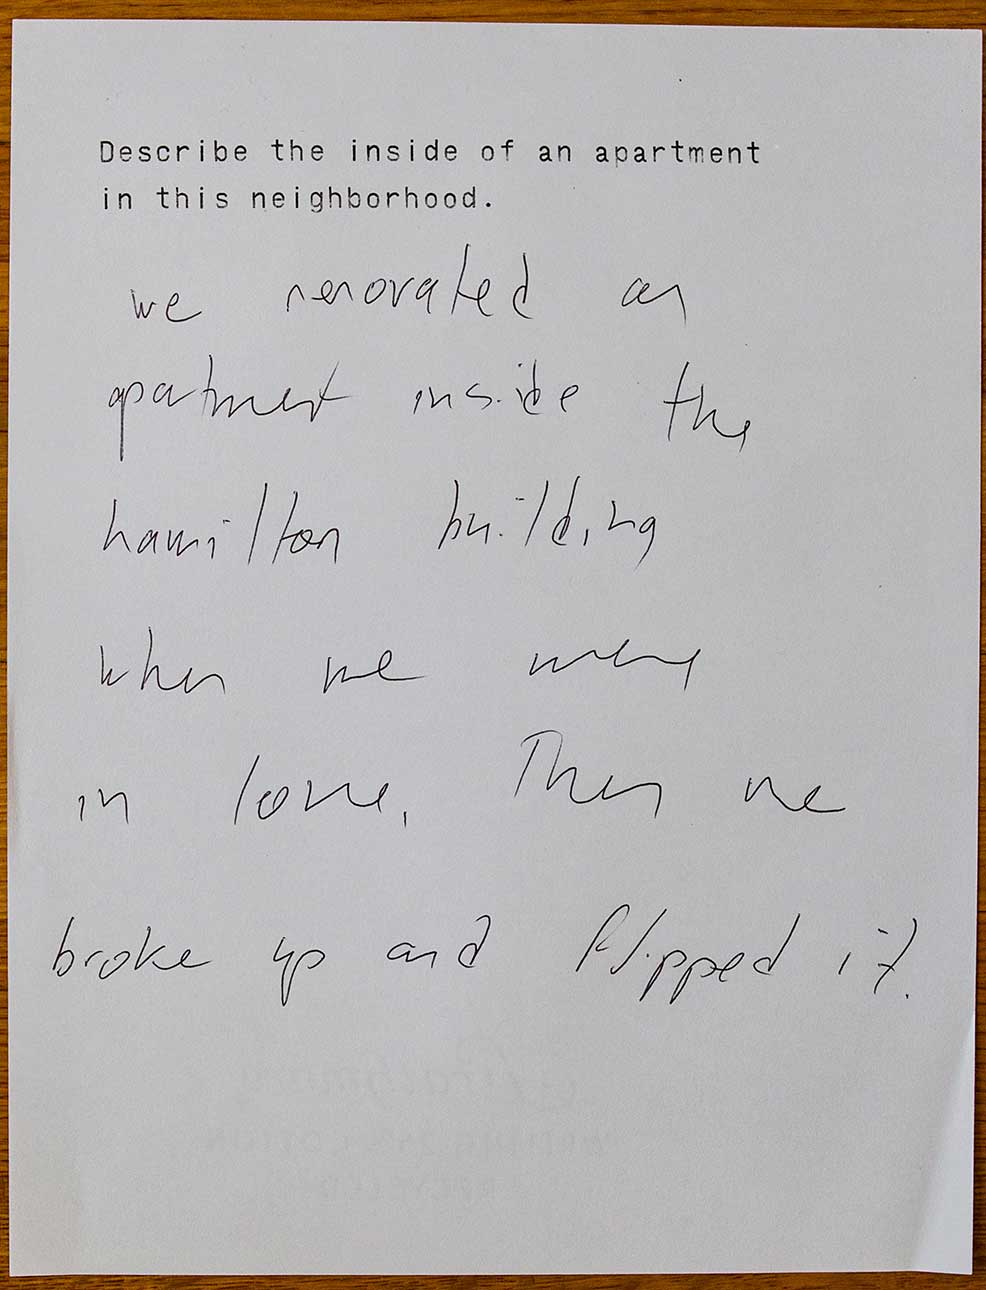 Describe the inside of an apartment
in this neighborhood.
we renovated an
apartment inside the
hamilton building
when we were
in love. Then we
broke up and flipped it.